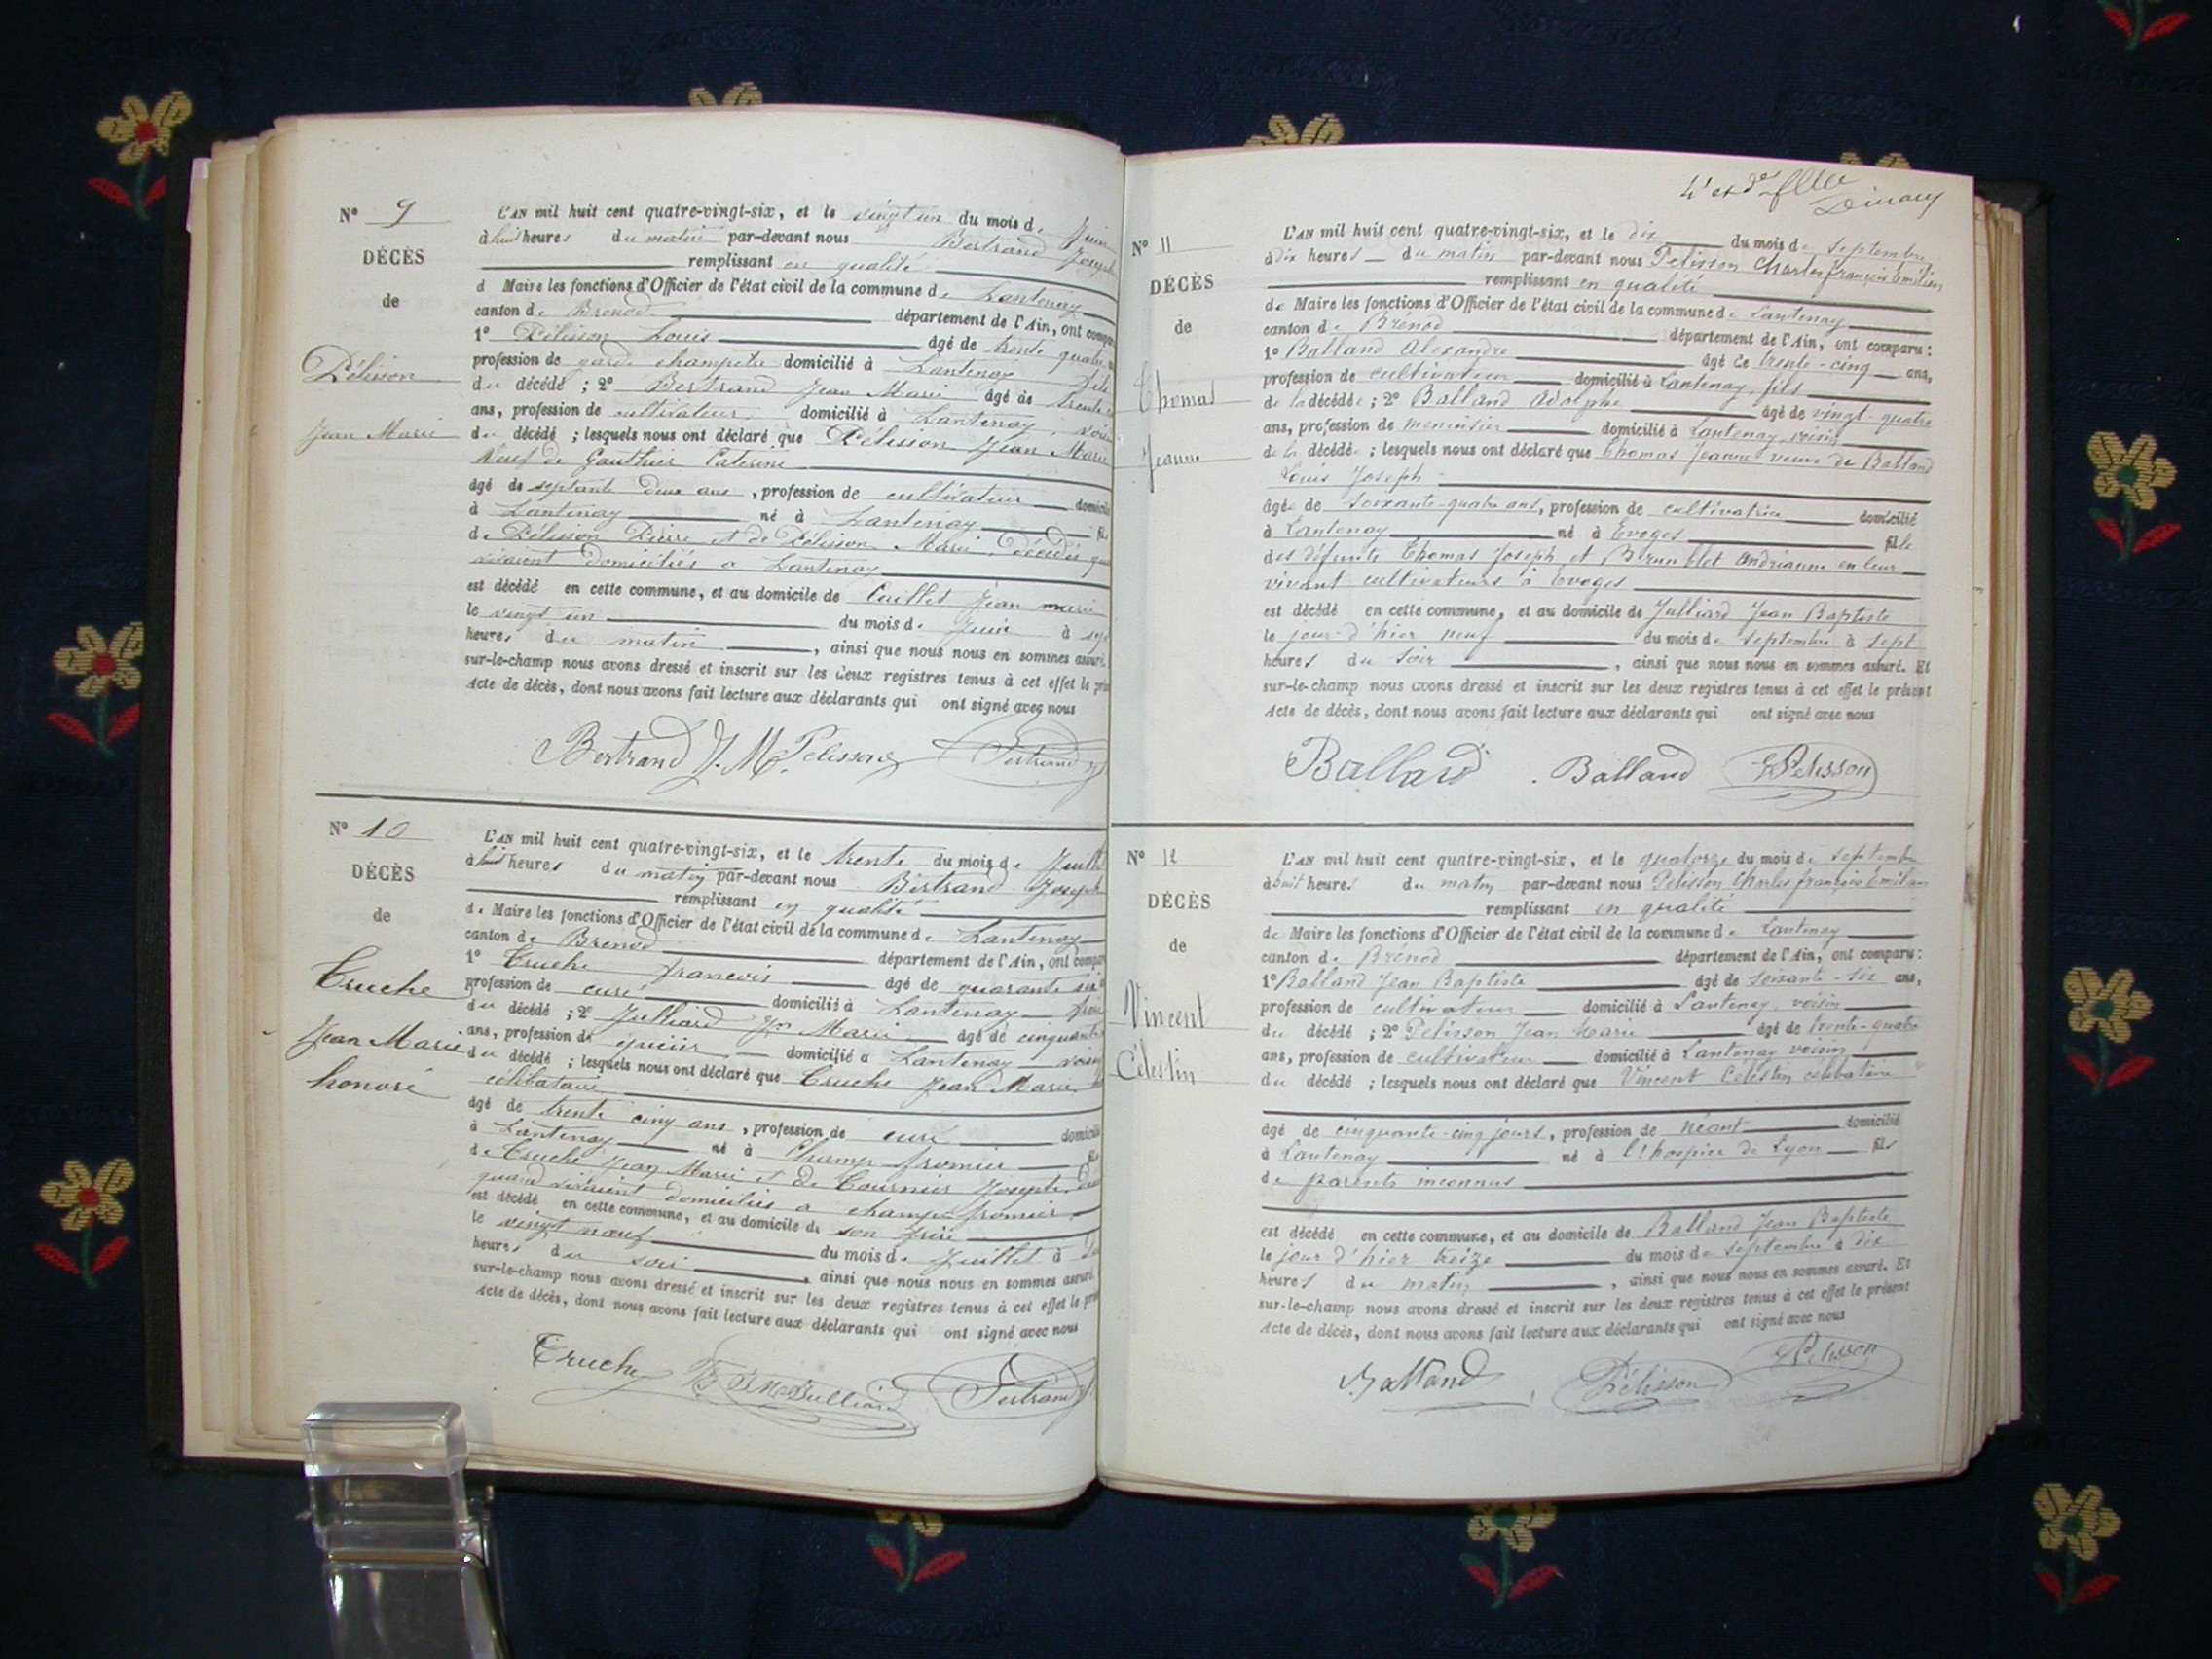 N° 9
DÉCÈS
de
Pélisson
Jean Marie
L'AN mil huit cent quatre-vingt-six, et le vingt un du mois de Juin
à huit heures du matin par-devant nous Bertrand Joseph
remplissant en qualité
d Maire les fonctions d'Officier de l'état civil de la commune de Lantenay
canton de Brenod département de l'Ain, ont compar
1° Pélisson Louis âgé de trente quatre
profession de garde champetre domicilié à Lantenay fils
du décédé ; 2° Bertrand Jean Marie âgé de trente
ans, profession de cultivateur domicilié à Lantenay, voisin
du décédé ; lesquels nous ont déclaré que Pélisson Jean Marie
Veuf de Gauthier Caterine
âgé de septante deux ans, profession de cultivateur domicilié
à Lantenay né à Lantenay fils
de Pélisson Pierre et de Pélisson Marie, décédés qu
vivaient domiciliés a Lantenay
est décédé en cette commune, et au domicile de Caillet Jean marie
le vingt un du mois de Juin à sep
heures du matin, ainsi que nous nous en sommes assuré.
sur-le-champ nous avons dressé et inscrit sur les deux registres tenus à cet effet le pré
Acte de décès, dont nous avons fait lecture aux déclarants qui ont signé avec nous
Bertrand J. M. Pelisson Bertrand J
N° 10
DÉCÈS
de
Truche
Jean Marie
honoré
L'AN mil huit cent quatre-vingt-six, et le trente du mois de Juillet
à huit heures du matin par-devant nous Bertrand Joseph
remplissant en qualité
de Maire les fonctions d'Officier de l'état civil de la commune de Lantenay
canton de Brenod département de l'Ain, ont compar
1° Truche francois âgé de quarante six
profession de curé domicilié à Lantenay frère
du décédé ; 2° Julliard Jn Marie âgé de cinquante
ans, profession de épicier domicilié à Lantenay voisin
du décédé ; lesquels nous ont déclaré que Truche Jean Marie
célibataire
âgé de trente cinq ans, profession de curé domicilié
à Lantenay né à Champ fromier fils
de Truche Jean Marie et de Tournier Josephte
quand vivaient domiciliés a champ fromier
est décédé en cette commune, et au domicile de son frère
le vingt neuf du mois de Juillet à
heures du soir, ainsi que nous nous en sommes assuré.
sur-le-champ nous avons dressé et inscrit sur les deux registres tenus à cet effet le pré
Acte de décès, dont nous avons fait lecture aux déclarants qui ont signé avec nous
Truche Julliard Bertrand J
4e et de
N° 11
DÉCÈS
de
Thomas
Jeanne
L'AN mil huit cent quatre-vingt-six, et le dix du mois de septembre
à dix heures du matin par-devant nous Pelisson Charles françois Emilien
remplissant en qualité
de Maire les fonctions d'Officier de l'état civil de la commune de Lantenay
canton de Brénod département de l'Ain, ont comparu :
1° Balland Alexandre âgé de trente-cinq ans,
profession de cultivateur domicilié à Lantenay, fils
de la décédée ; 2° Balland Adolphe âgé de vingt-quatre
ans, profession de menuisier domicilié à Lantenay, voisin
de la décédée ; lesquels nous ont déclaré que Thomas Jeanne veuve de Balland
Louis Joseph
âgée de soixante-quatre ans, profession de cultivatrice domicilié
à Lantenay né à Evoges fille
des défunts Thomas Joseph et Brunblet Andrianne en leur
vivant cultivateurs à Evoges
est décédé en cette commune, et au domicile de Julliard Jean Baptiste
le jour d'hier neuf du mois de septembre à sept
heures du soir, ainsi que nous nous en sommes assuré. Et
sur-le-champ nous avons dressé et inscrit sur les deux registres tenus à cet effet le présent
Acte de décès, dont nous avons fait lecture aux déclarants qui ont signé avec nous
Balland Balland E Pelisson
N° 12
DÉCÈS
de
Vincent
Célestin
L'AN mil huit cent quatre-vingt-six, et le quatorze du mois de septembre
à huit heures du matin par-devant nous Pelisson Charles françois Emilien
remplissant en qualité
de Maire les fonctions d'Officier de l'état civil de la commune de Lantenay
canton de Brénod département de l'Ain, ont comparu :
1° Balland Jean Baptiste âgé de soixante-six ans,
profession de cultivateur domicilié à Lantenay, voisin
du décédé ; 2° Pelisson Jean Marie âgé de trente-quatre
ans, profession de cultivateur domicilié à Lantenay voisin
du décédé ; lesquels nous ont déclaré que Vincent Célestin célibataire
âgé de cinquante-cinq jours, profession de néant domicilié
à Lantenay né à l'hospice de Lyon fils
de parents inconnus
est décédé en cette commune, et au domicile de Balland Jean Baptiste
le jour d'hier treize du mois de septembre à dix
heures du matin, ainsi que nous nous en sommes assuré. Et
sur-le-champ nous avons dressé et inscrit sur les deux registres tenus à cet effet le présent
Acte de décès, dont nous avons fait lecture aux déclarants qui ont signé avec nous
Balland Pélisson E Pelisson